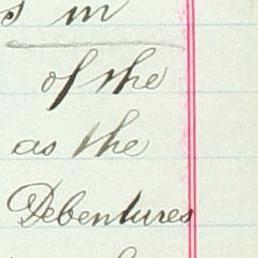 s in
of the
as the
Debentures